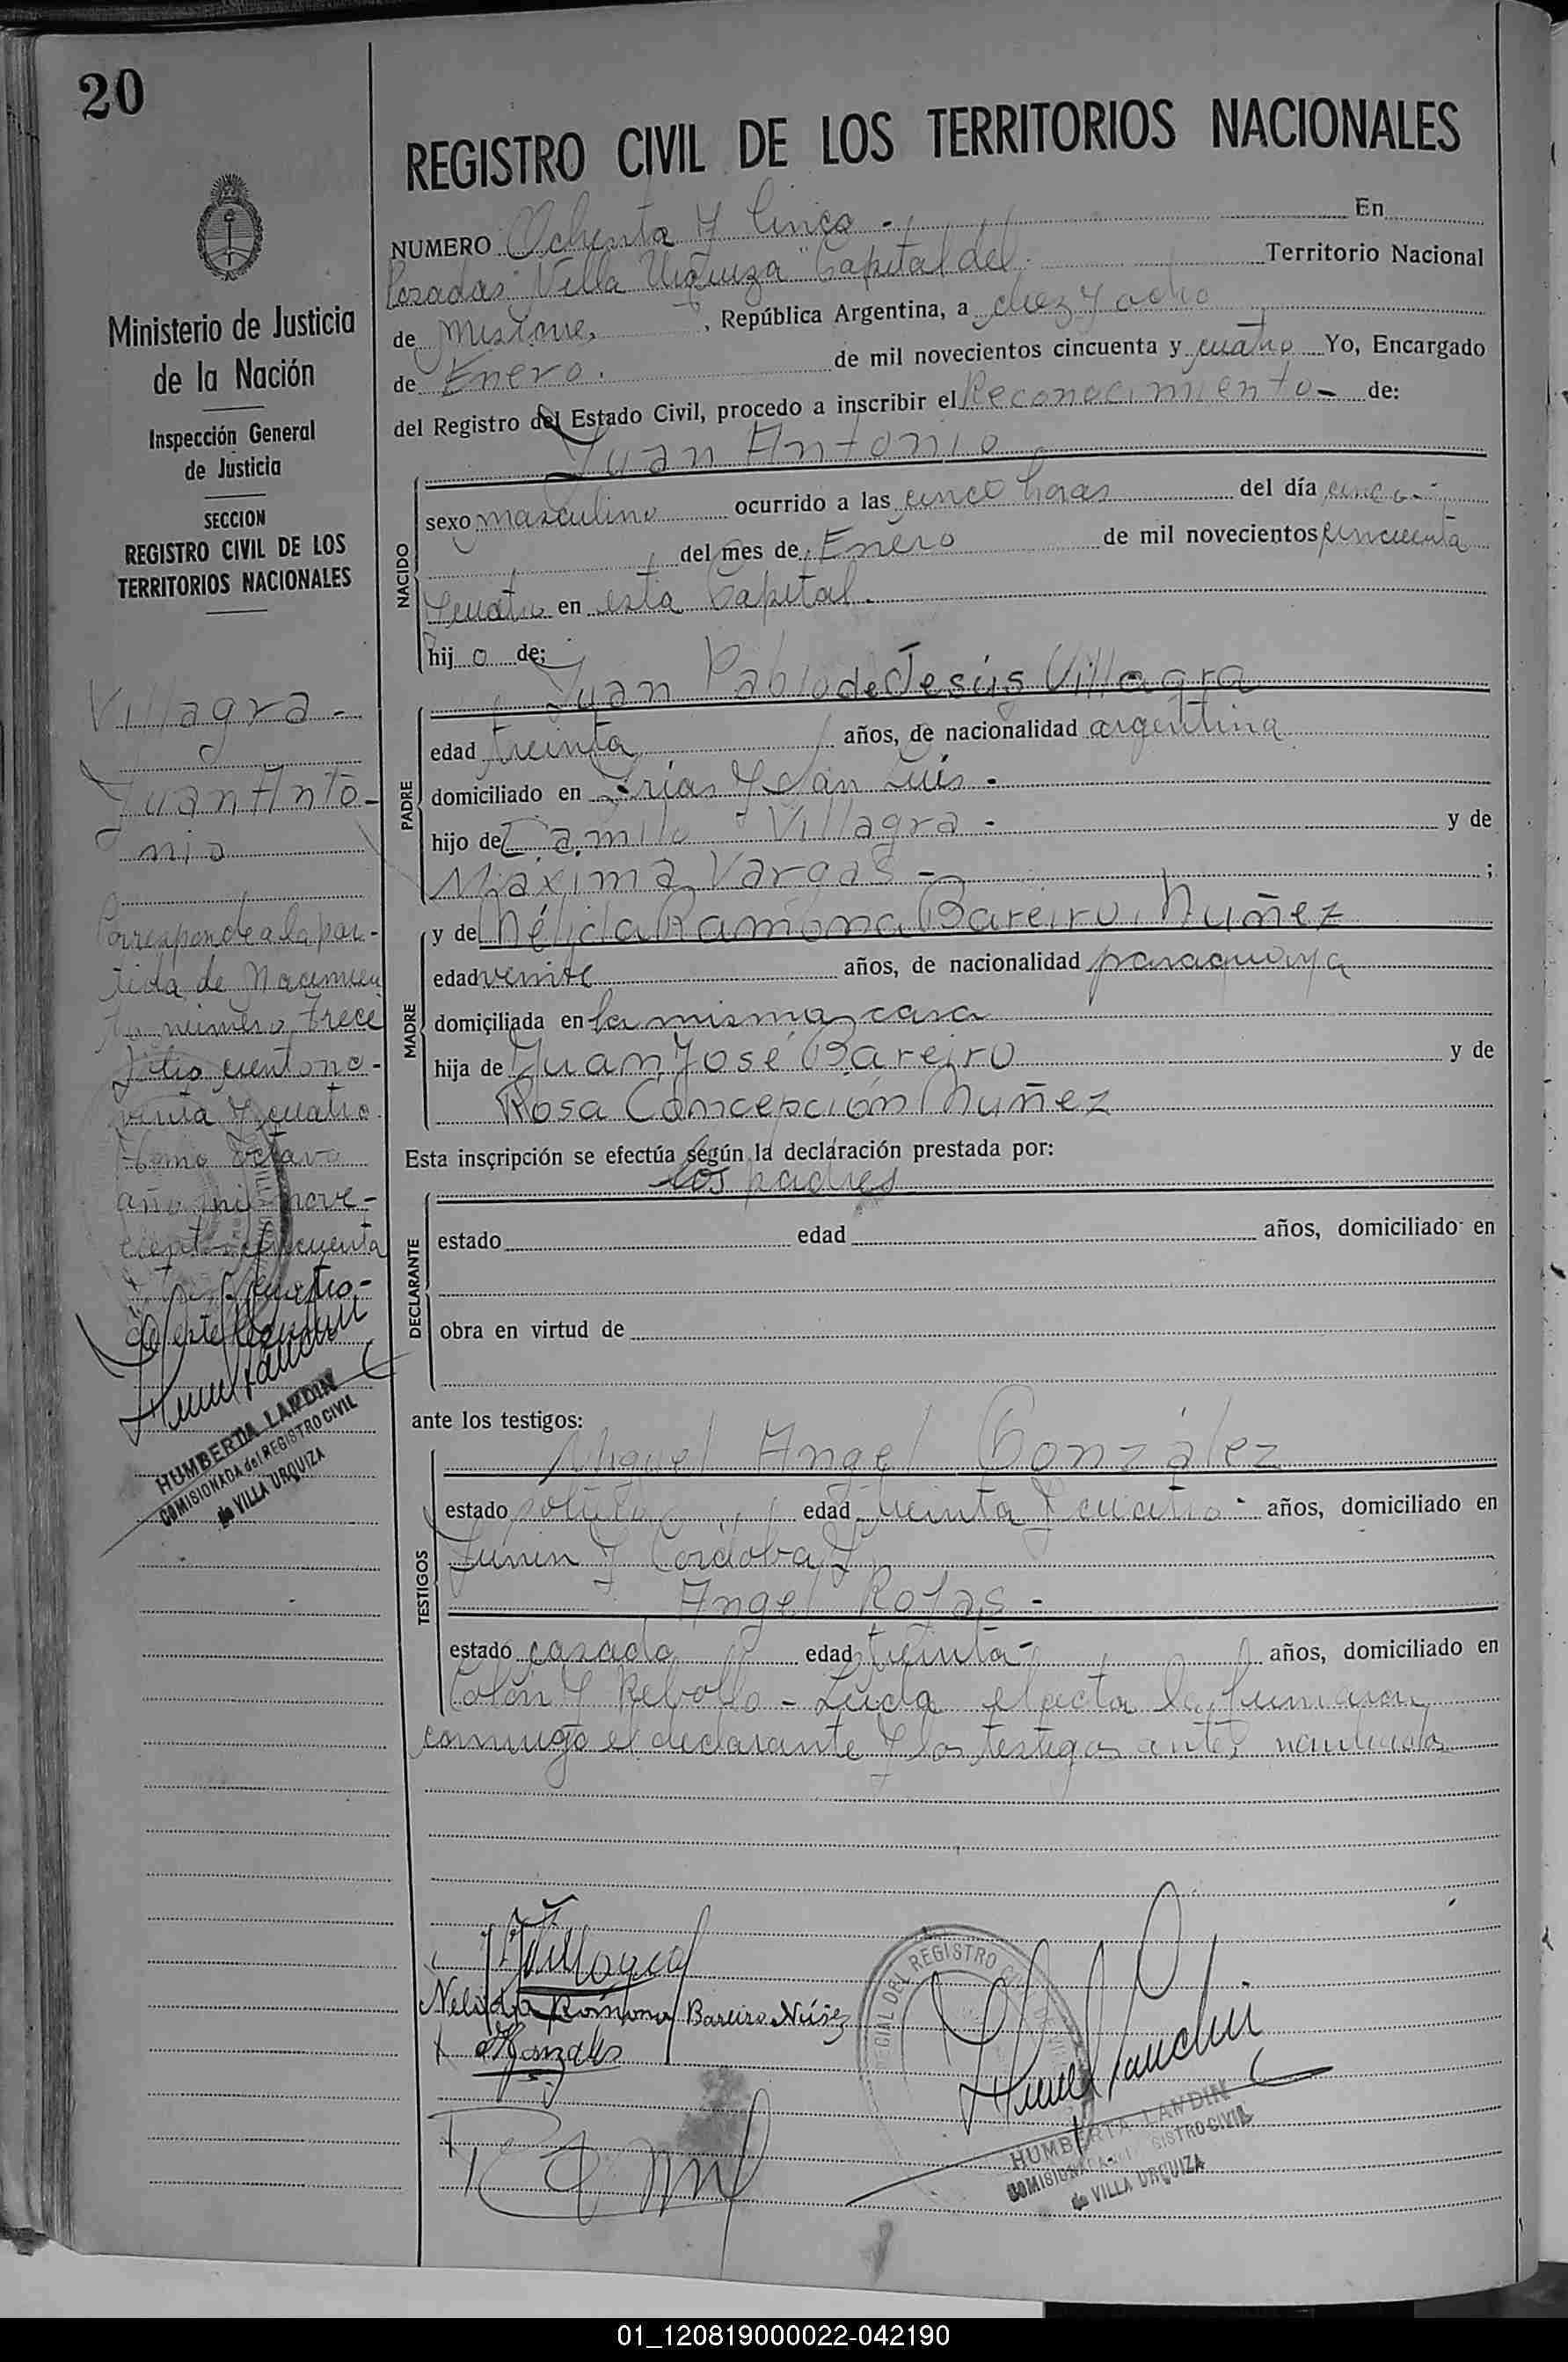 20
REGISTRO CIVIL DE LOS TERRITORIOS NACIONALES
NUMERO Ochenta y Cinco -. En
Posadas "Villa Urquiza" Capital del Territorio Nacional
de Misiones, República Argentina, a diez y ocho
de Enero. de mil novecientos cincuenta y cuatro Yo, Encargado
del Registro del Estado Civil, procedo a inscribir el Reconocimiento - de:
Juan Antonio
NACIDO
sexo masculino ocurrido a las cinco horas del día cinco -
del mes de Enero de mil novecientos cincuenta
y cuatro en esta Capital.
hij o de:
Juan Pablo de Jesús Villagra
PADRE
edad treinta años, de nacionalidad argentina
domiciliado en Frías y San Luis -
hijo de Camilo Villagra - y de
Máxima Vargas - ;
MADRE
y de Nélida Ramona Bareiro Nuñez
edad veinte años, de nacionalidad paraguaya
domiciliada en la misma casa
hija de Juan José Bareiro y de
Rosa Concepción Nuñez
Esta inscripción se efectúa según la declaración prestada por:
los padres
DECLARANTE
estado edad años, domiciliado en
obra en virtud de
ante los testigos:
Miguel Angel González
TESTIGOS
estado soltero edad treinta y cuatro - años, domiciliado en
Junin y Cordoba y
Angel Rojas -
estado casado edad treinta - años, domiciliado en
Colón y Rebollo - Leida el acta la firmaron
conmigo el declarante y los testigos antes nombrados
Villagra
Nelida Ramona Bareiro Núñez
González
REGISTRO
HUMBERTA LANDIN
COMISIONADA del REGISTRO CIVIL
de VILLA URQUIZA
Ministerio de Justicia
de la Nación
Inspección General
de Justicia
SECCION
REGISTRO CIVIL DE LOS
TERRITORIOS NACIONALES
Villagra -
Juan Anto-
nio
Corresponde a la par-
tida de Nacimien
to número trece
folio ciento no-
venta y cuatro
tomo octavo
año mil nove-
cientos cincuenta
y cuatro -
de este
HUMBERTA LANDIN
COMISIONADA del REGISTRO CIVIL
de VILLA URQUIZA
01_120819000022-042190